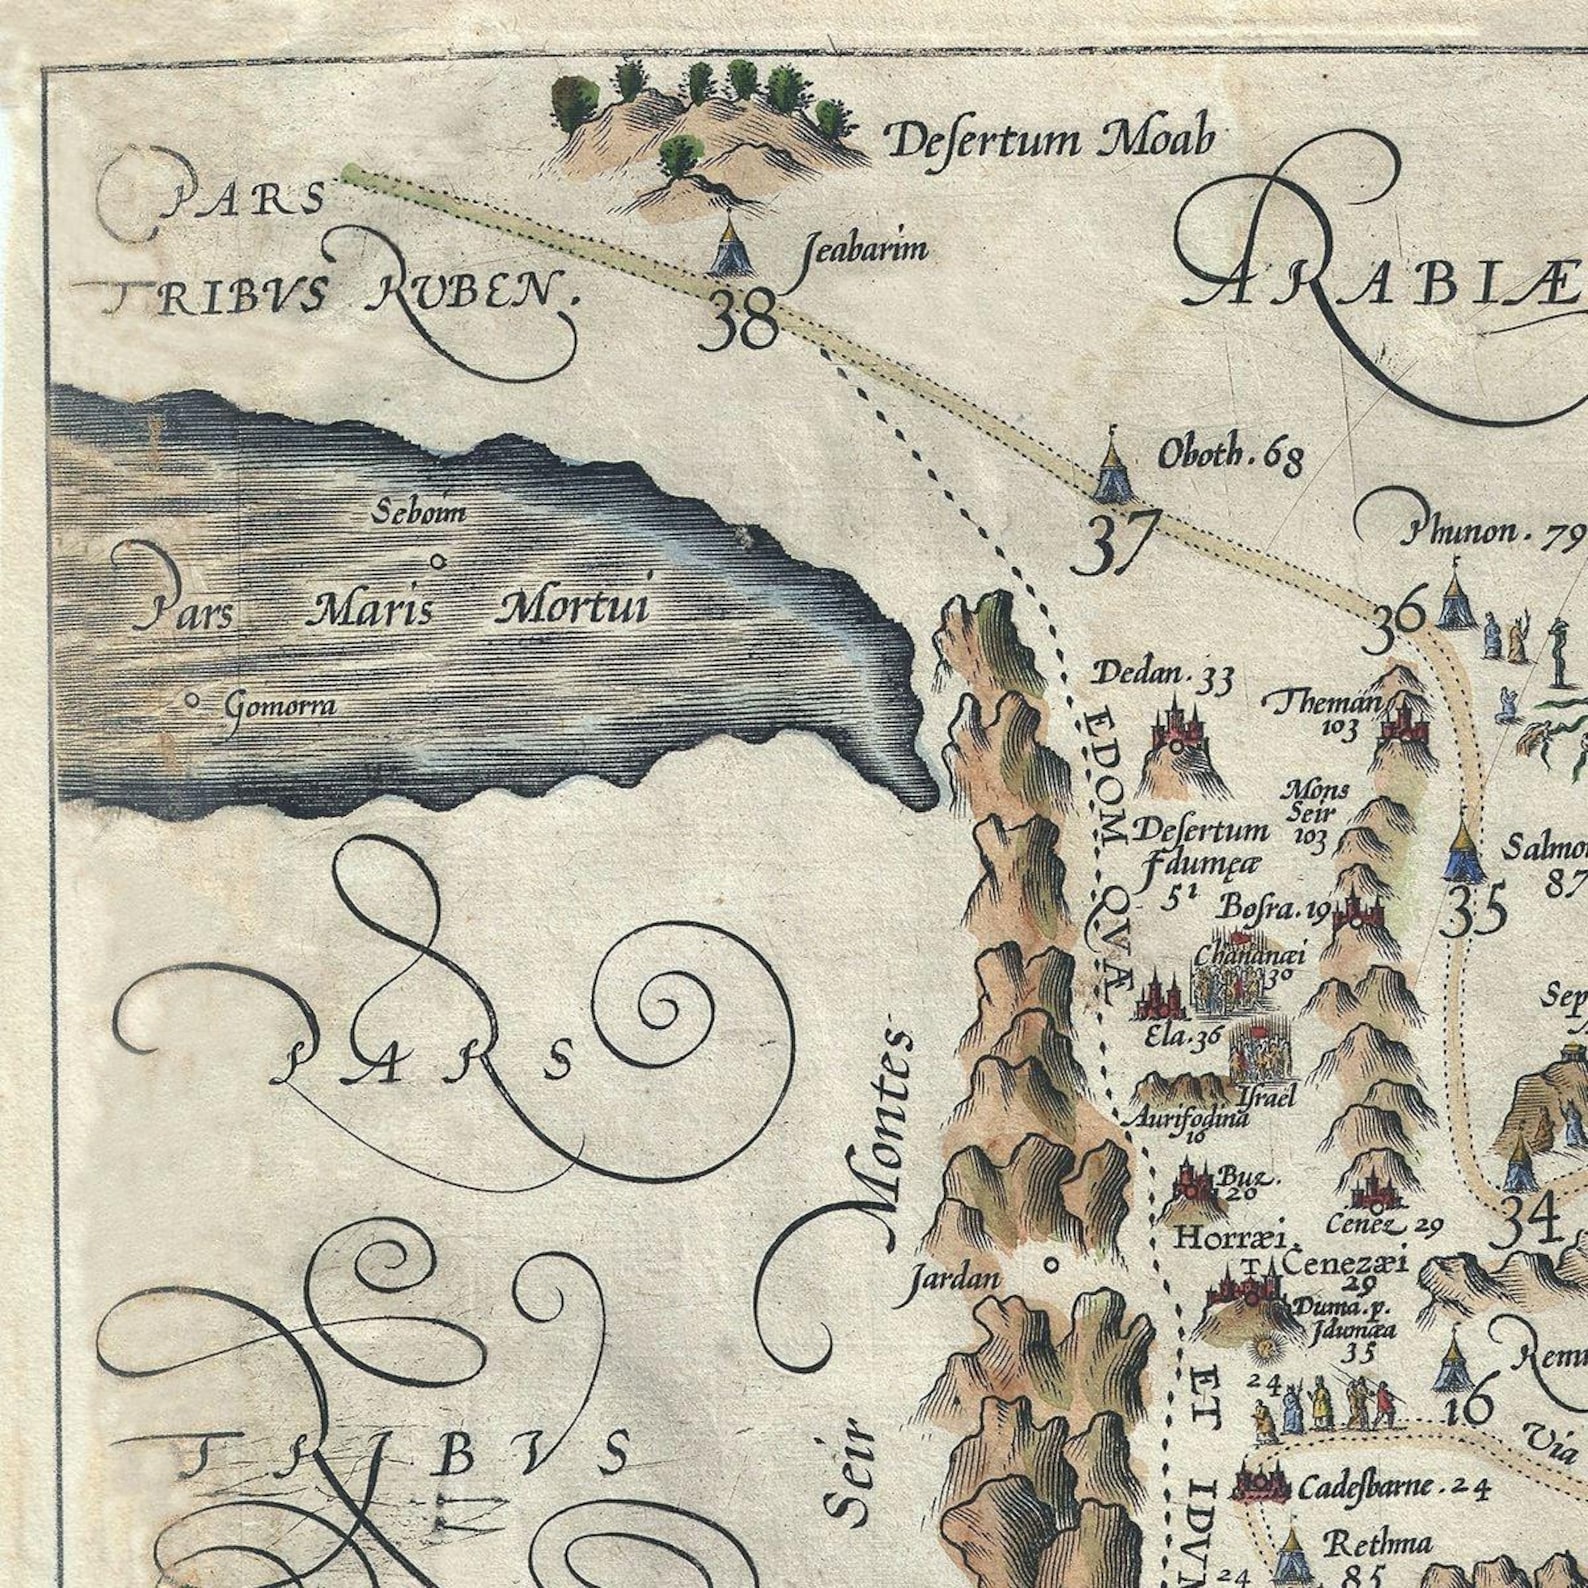 Deſertum Moab
PARS
TRIBVS RUBEN.
Jeabarim
38
ARABIÆ
Oboth. 68
37
Phunon. 79
36
Seboim
Pars Maris Mortui
Gomorra
Dedan. 33
Theman
103
EDOM QVÆ
ET IDVM
Mons
Seir
103
Deſertum
Idumęæ
51
Boſra. 19
35
Salmo
87
Chananæi
30
Ela. 36
Iſrael
Aurifodina
16
Sep
34
PARS
Montes
Seir
Buz.
20
Cenez 29
Horræi.
T Cenezæi
29
Duma. p.
Idumæa
35
Jardan
24
16
Remm
Via
TRIBVS
Cadeſbarne. 24
Rethma
85
24